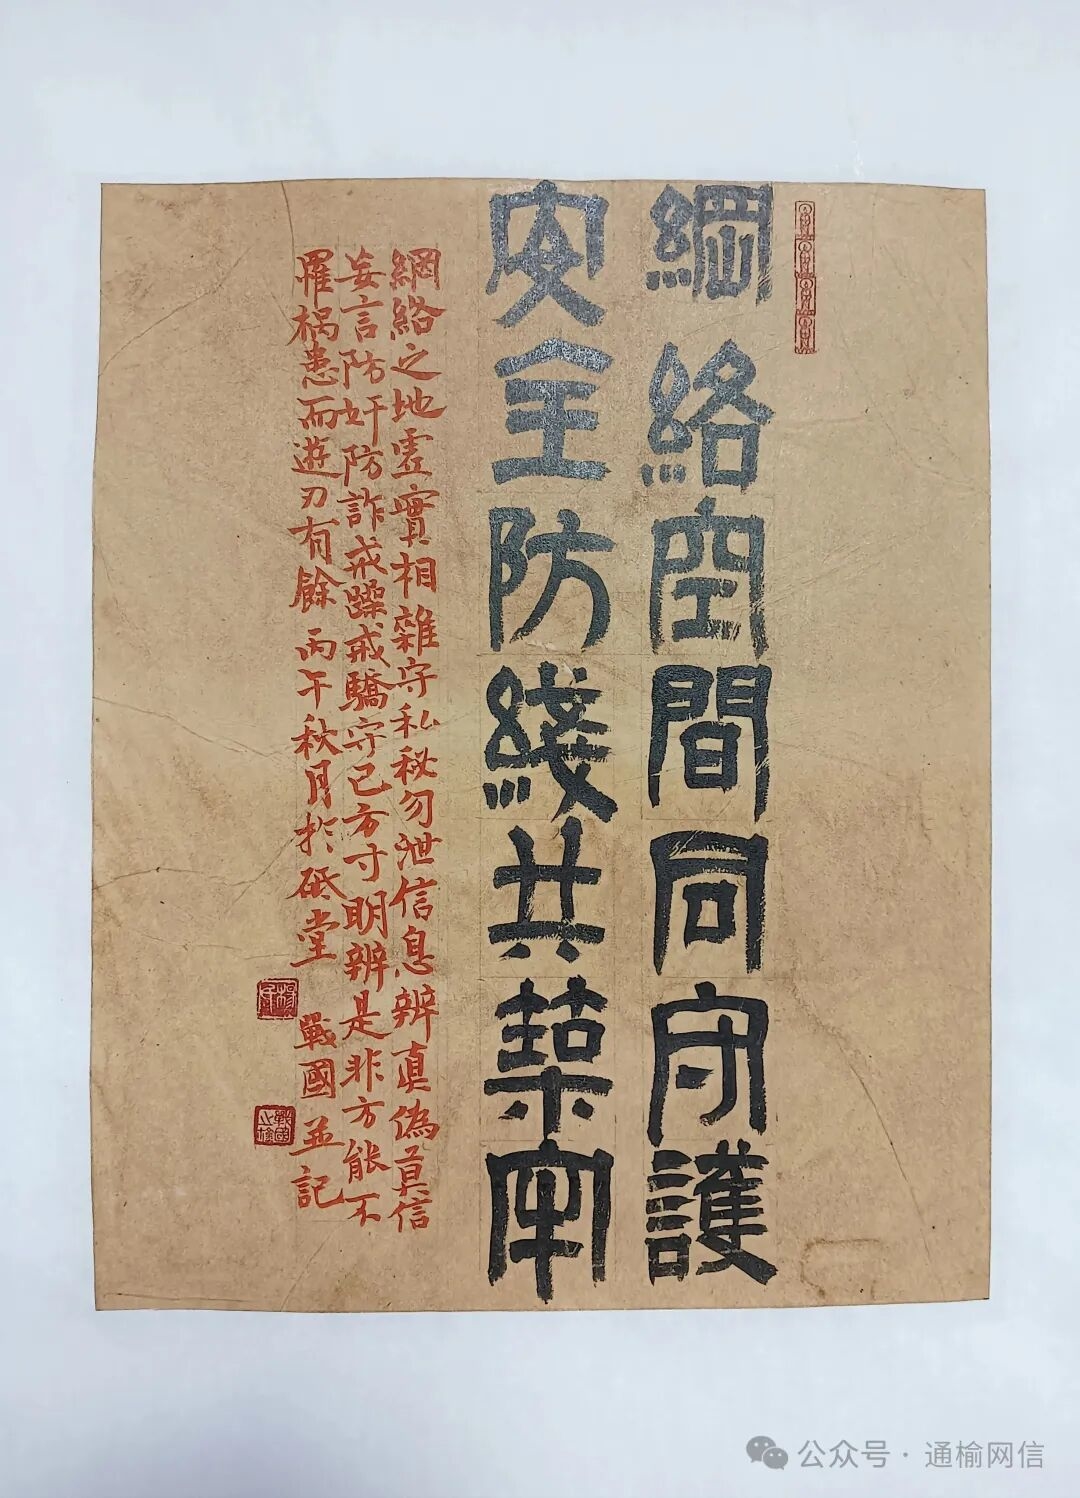 網絡空間同守護
安全防綫共築牢
網絡之地虛實相雜守私秘勿泄信息辨真偽莫信
妄言防奸防詐戒躁戒驕守己方寸明辨是非方能不
罹禍患而遊刃有餘 丙午秋月於砥堂 戰國並記
公众号 · 通榆网信